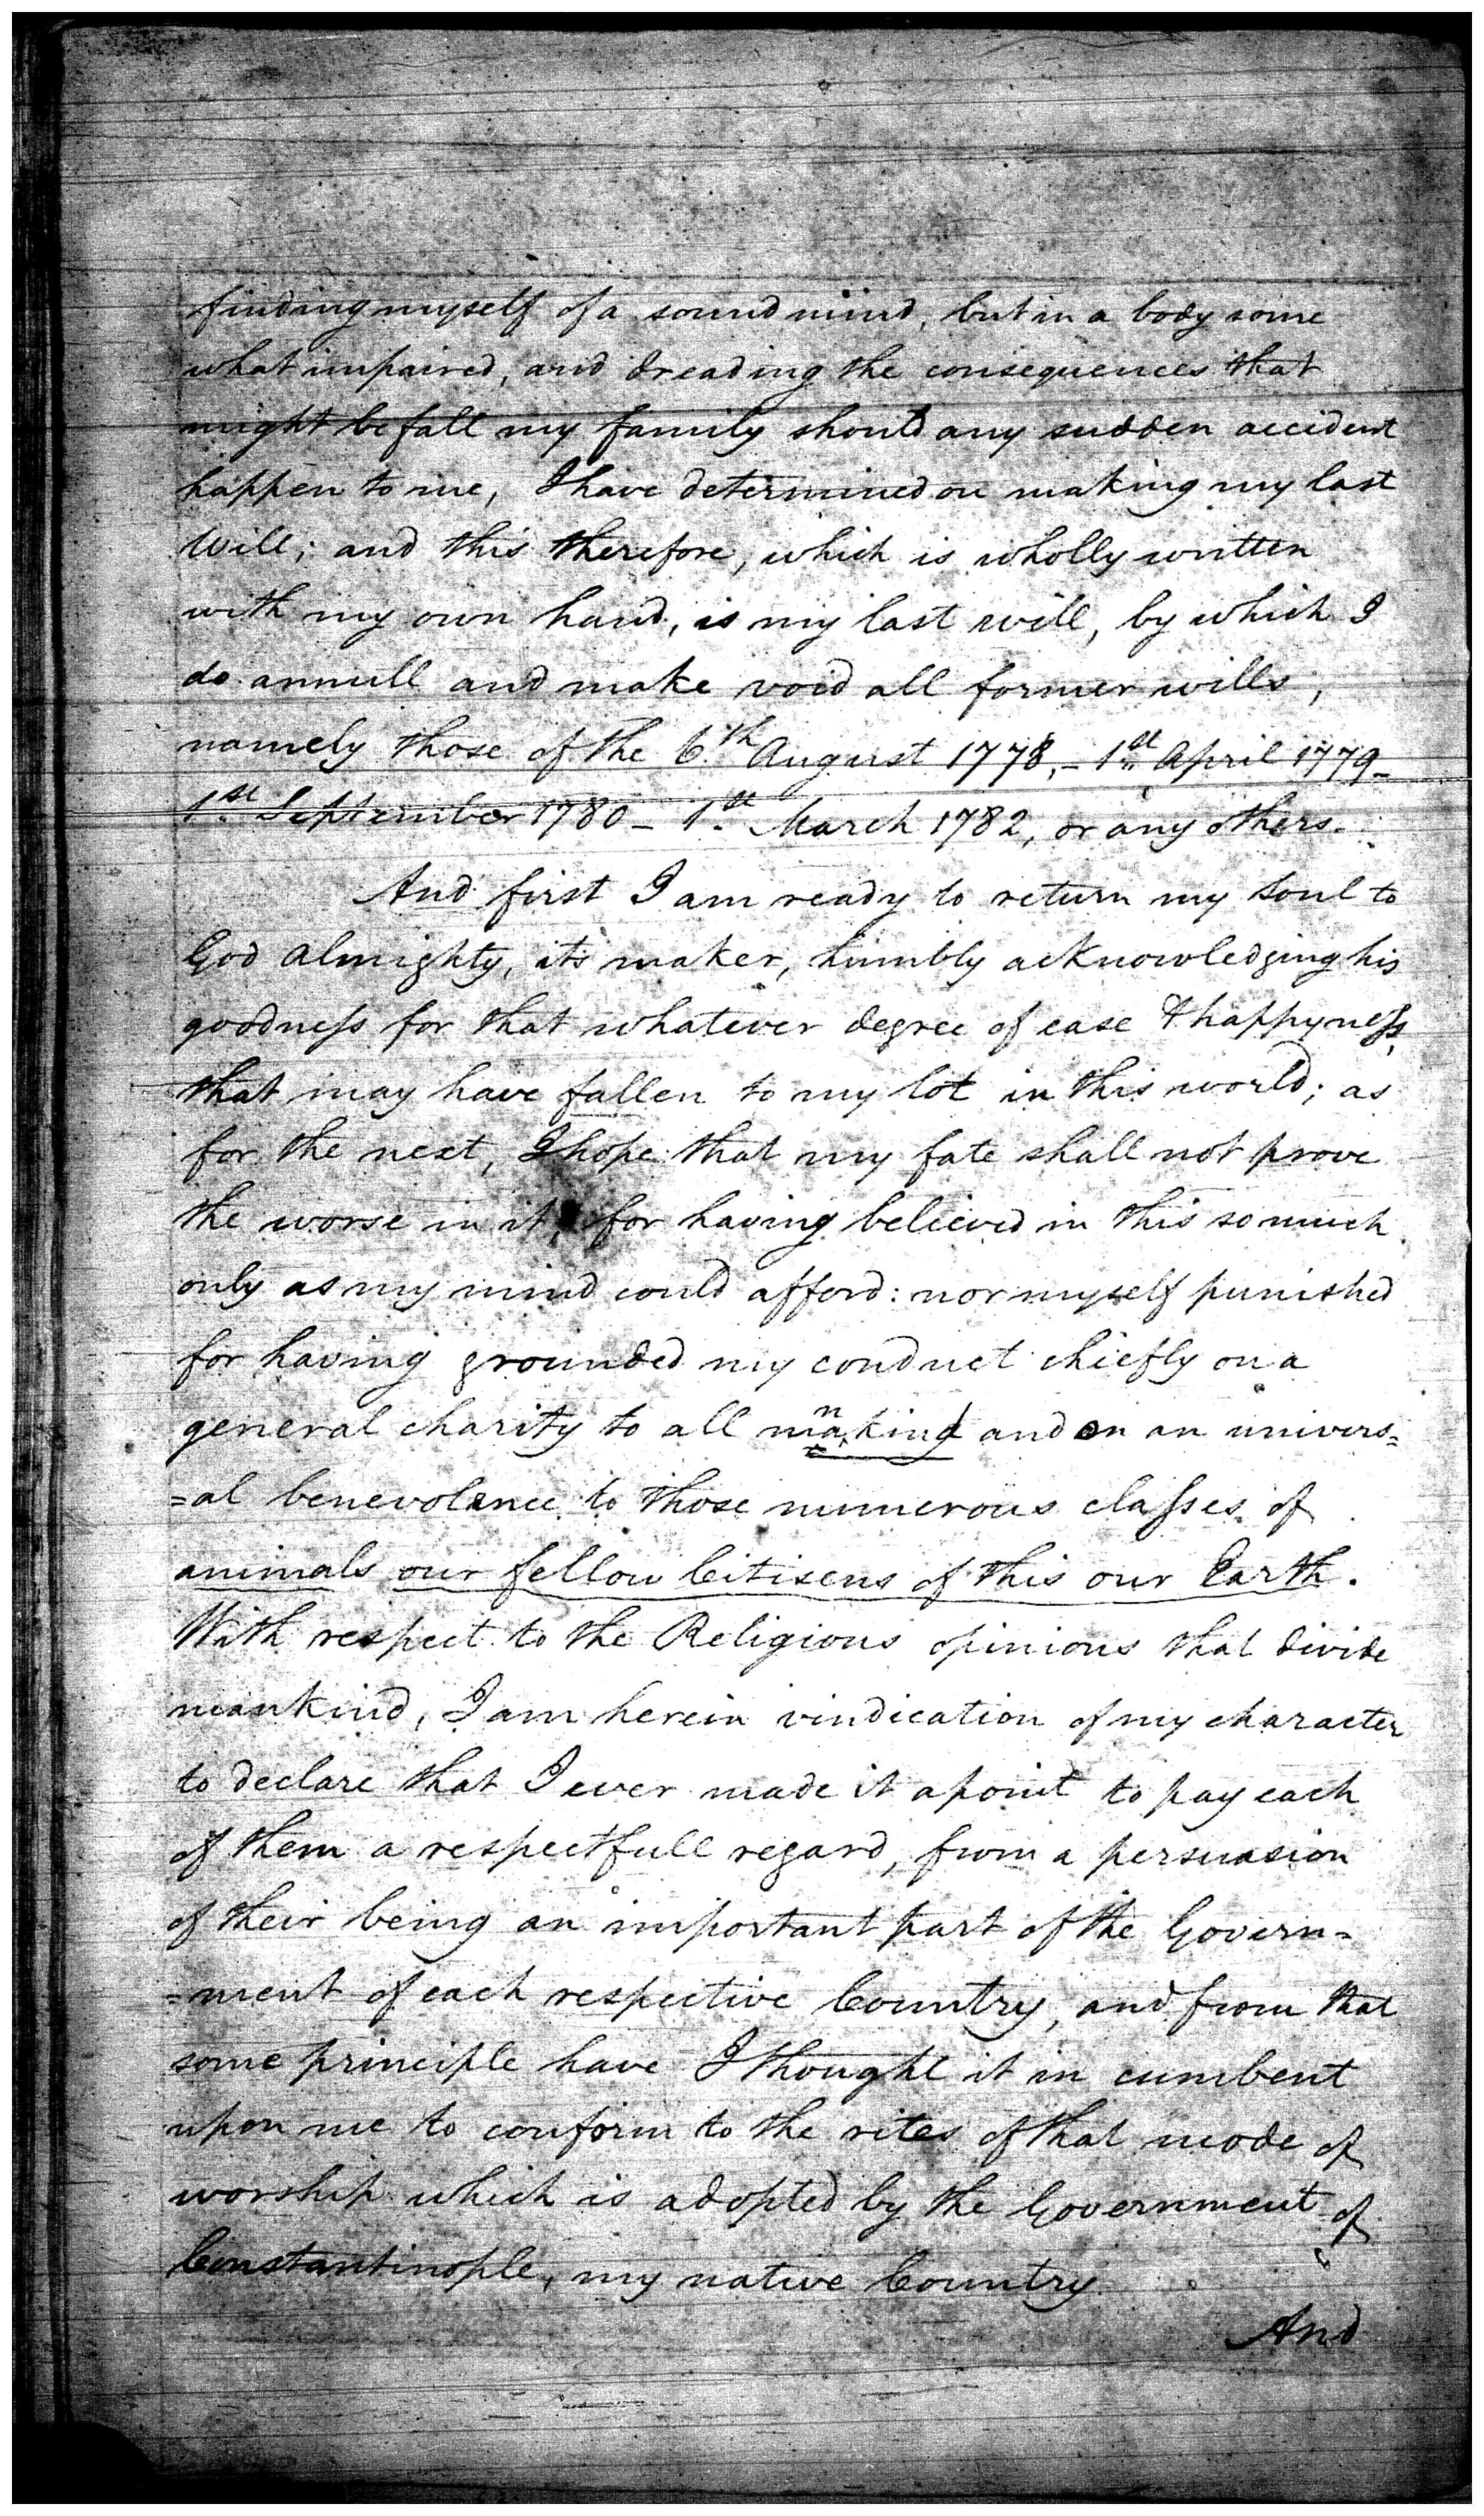 finding myself of a sound mind, but in a body some
what impaired, and dreading the consequences that
might befall my family should any sudden accident
happen to me, I have determined on making my last
Will; and this therefore, which is wholly written
with my own hand, is my last will, by which I
do annull and make void all former wills,
namely those of the 6th August 1778, - 1st April 1779 -
1st September 1780 - 1st March 1782, or any others.
And first I am ready to return my soul to
God almighty, it's maker, humbly acknowledging his
goodness for that whatever degree of ease & happyness,
that may have fallen to my lot in this world; as
for the next, I hope that my fate shall not prove
the worse in it, for having believed in this so much
only as my mind could afford: nor myself punished
for having grounded my conduct chiefly on a
general charity to all mankind and on an univers=
=al benevolence to those numerous classes of
animals our fellow Citisens of this our Earth.
With respect to the Religious opinions that divide
mankind, I am herein vindication of my character
to declare that I ever made it a point to pay each
of them a respectfull regard, from a persuasion
of their being an important part of the Govern=
=ment of each respective Country, and from that
some principle have I thought it in cumbent
upon me to conform to the rites of that mode of
worship which is adopted by the Government of
Constantinople, my native Country.
And